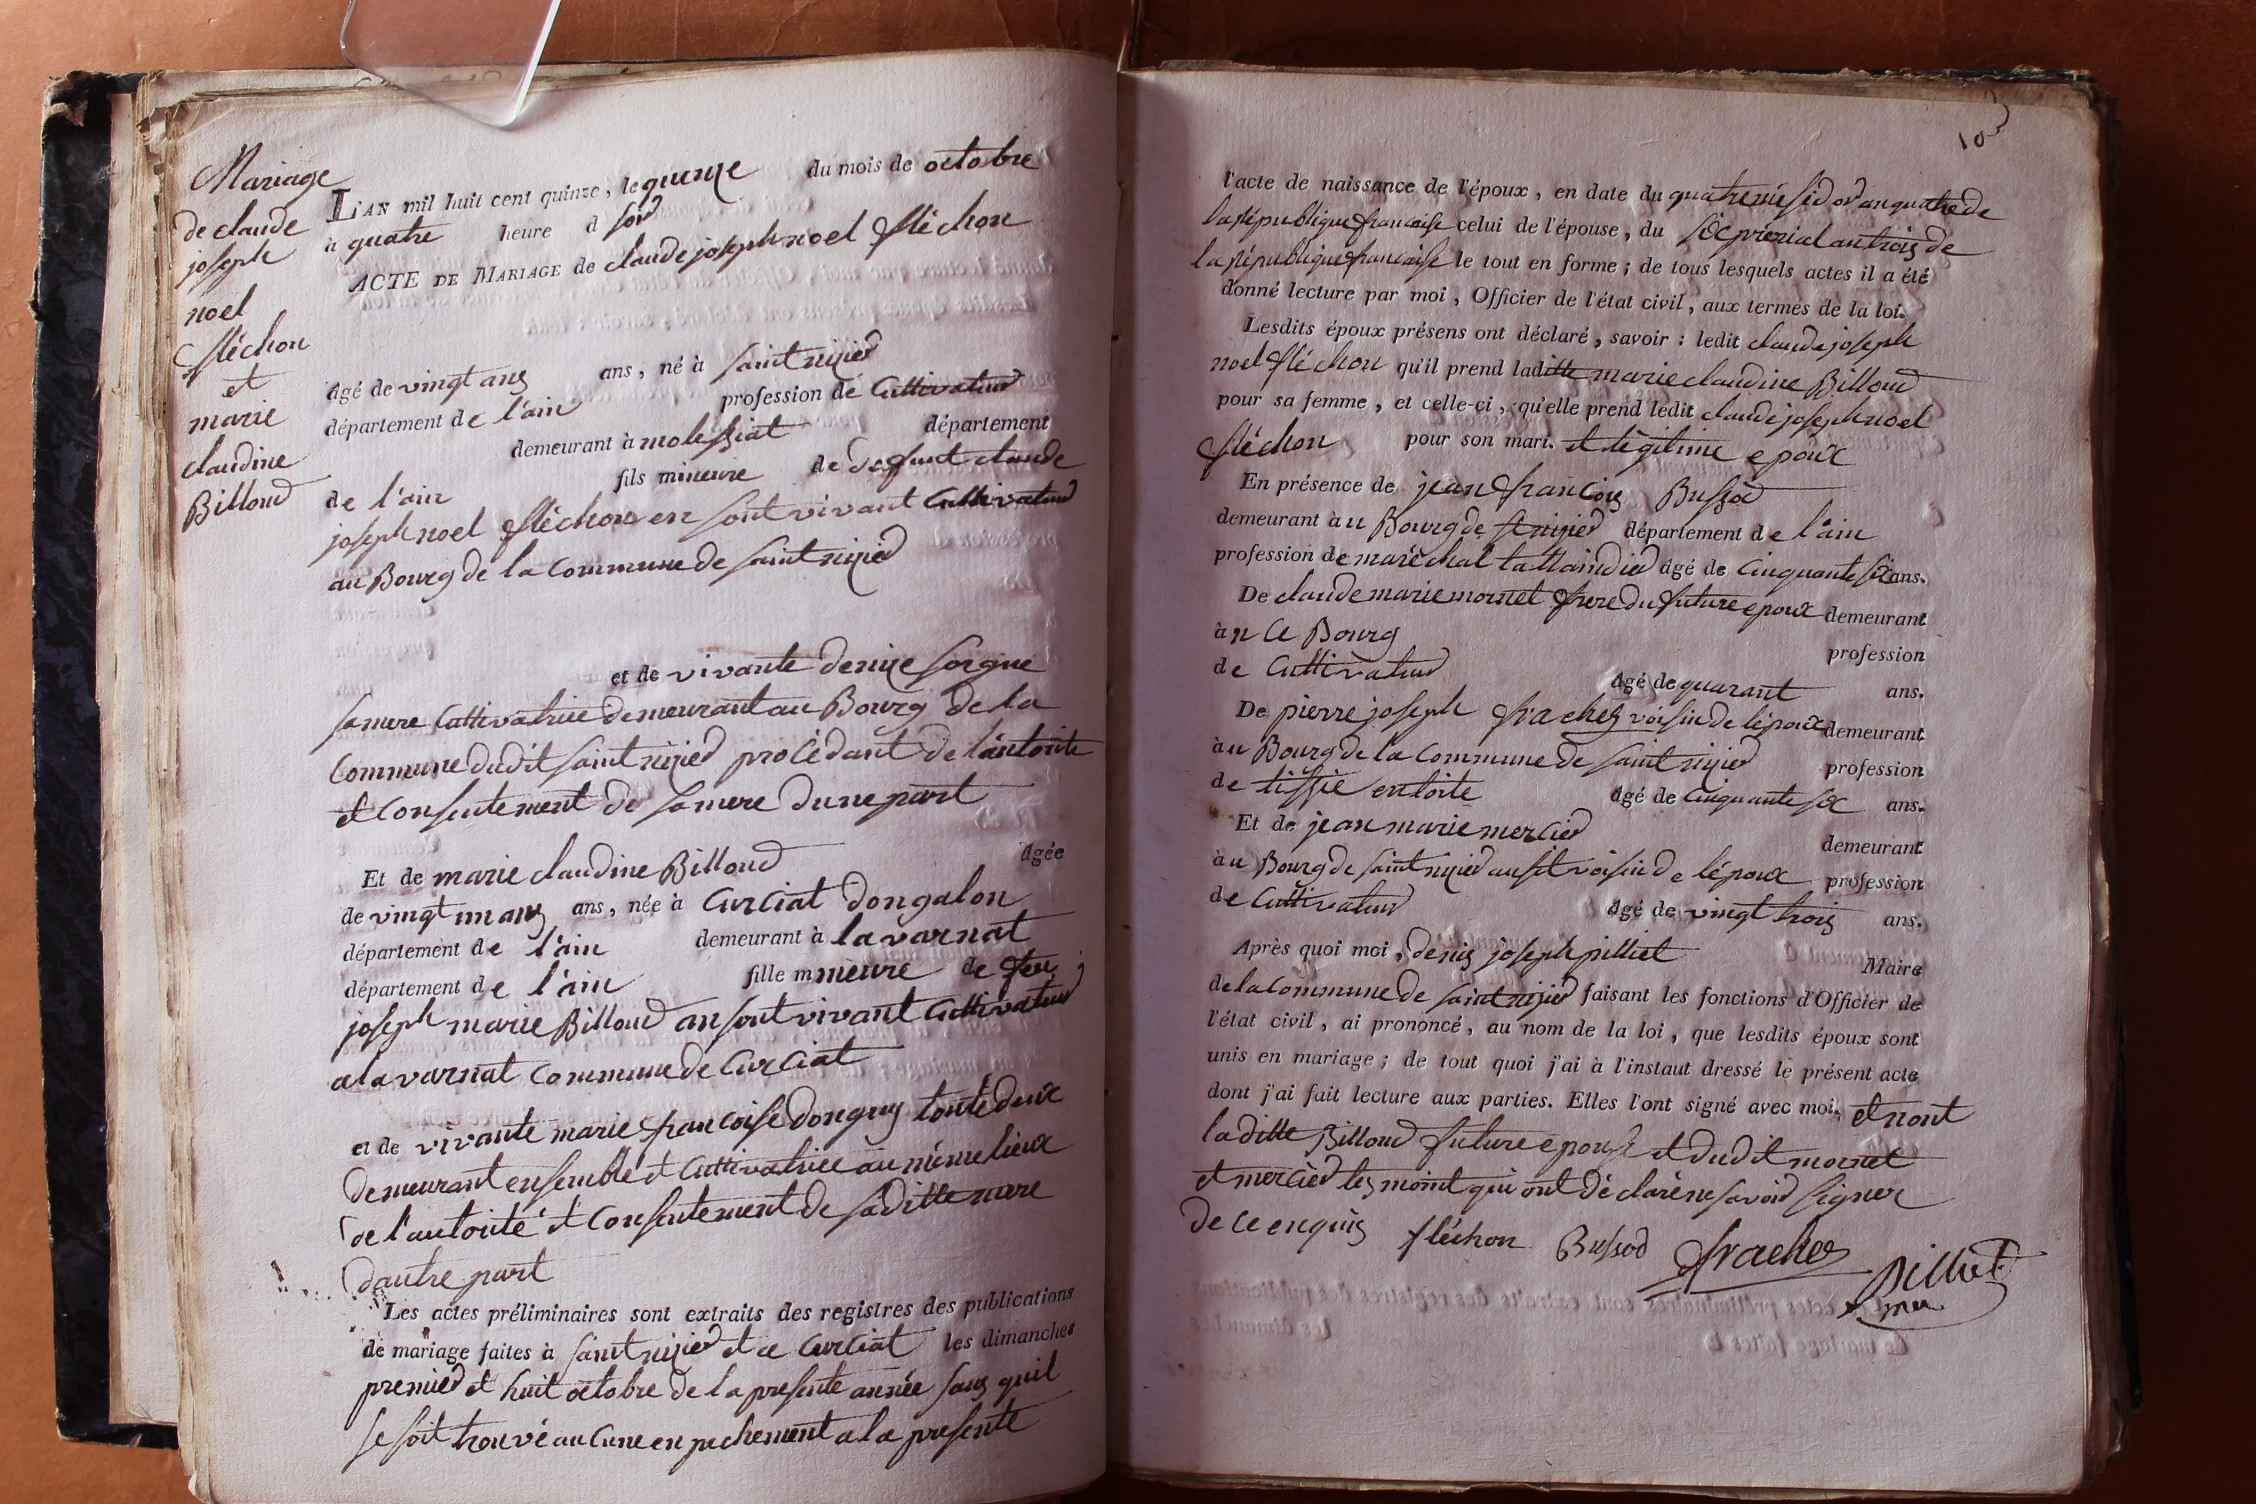 Mariage
de claude
joseph
noel
fléchon
et
marie
claudine
Billoud
L'AN mil huit cent quinze, le quinze du mois de octobre
à quatre heure d soir
ACTE DE MARIAGE de claude joseph noel fléchon
âgé de vingt ans ans, né à saint nizier
département de l'ain profession de Cultivateur
demeurant à molessiat département
de l'ain fils mineure de defunt claude
joseph noel fléchon en sont vivant Cultivateur
au Bourg de la Commune de saint nizier
et de vivante denize sorgue
sa mere Cultivatrice demeurant au Bourg de la
Commune dudit saint nizier procédant de l'autorite
et Consentement de sa mere dune part
Et de marie claudine Billoud âgée
de vingt un ans ans, née à Curciat dongalon
département de l'ain demeurant à la varnat
département de l'ain fille mineure de feu
joseph marie Billoud an sont vivant Cultivateur
a la varnat Commune de Curciat
et de vivante marie francoise donguy toute deux
demeurant ensemble et Cultivatrice au méme lieux
de l'autorité et Consentement de sa ditte mere
dautre part
Les actes préliminaires sont extraits des registres des publications
de mariage faites à saint nizier et a Curciat les dimanches
premier et huit octobre de la presente année sans quil
se soit trouvé au Cune en pechement a la presente
103
l'acte de naissance de l'époux, en date du quatre mésidor an quatre de
la république francaise celui de l'épouse, du six prérial an trois de
la république francaise le tout en forme; de tous lesquels actes il a été
donné lecture par moi, Officier de l'état civil, aux termes de la loi.
Lesdits époux présens ont déclaré, savoir: ledit claude joseph
noel fléchon qu'il prend laditte marie claudine Billoud
pour sa femme, et celle-ci, qu'elle prend ledit claude joseph noel
fléchon pour son mari. et légitime epoux
En présence de jean francois Bussod
demeurant au Bourg de st nizier département de l'ain
profession de maréchal tallaindier âgé de Cinquante six ans.
De claude marie mornet frere du future epoux demeurant
à n Ce Bourg profession
de Cultivateur âgé de quarant ans.
De pierre joseph frachez voisin de l'époux demeurant
au Bourg de la Commune de saint nizier profession
de tissie en toite âgé de Cinquante six ans.
Et de jean marie mercier demeurant
au Bourg de saint nizier ausit voisin de l'époux profession
de Cultivateur âgé de vingt trois ans.
Après quoi moi, denis joseph pilliet Maire
de la Commune de saint nizier faisant les fonctions d'Officier de
l'état civil, ai prononcé, au nom de la loi, que lesdits époux sont
unis en mariage; de tout quoi j'ai à l'instaut dressé le présent acte
dont j'ai fait lecture aux parties. Elles l'ont signé avec moi, et nont
la ditte Billoud future epouse et dudit mornet
et mercier tes moint qui ont déclaré ne savoir signer
de ce enquis fléchon Bussod frachez Pilliet